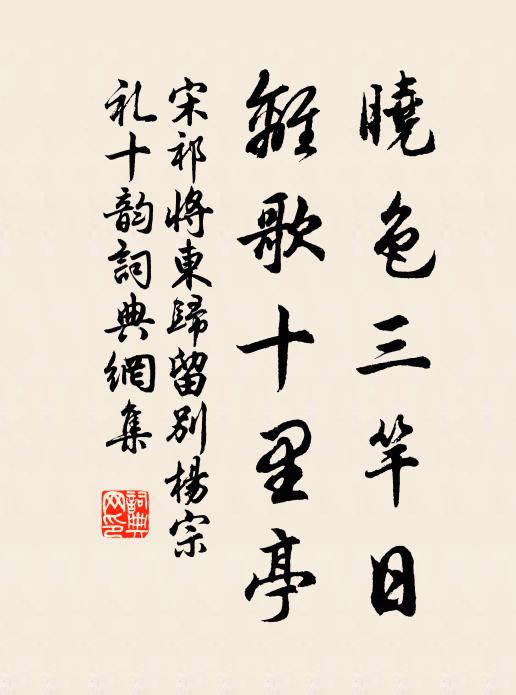 曉色三竿日
離歌十里亭
宋祁將東歸留別楊宗
礼十韵詞典網集
詞典
网印